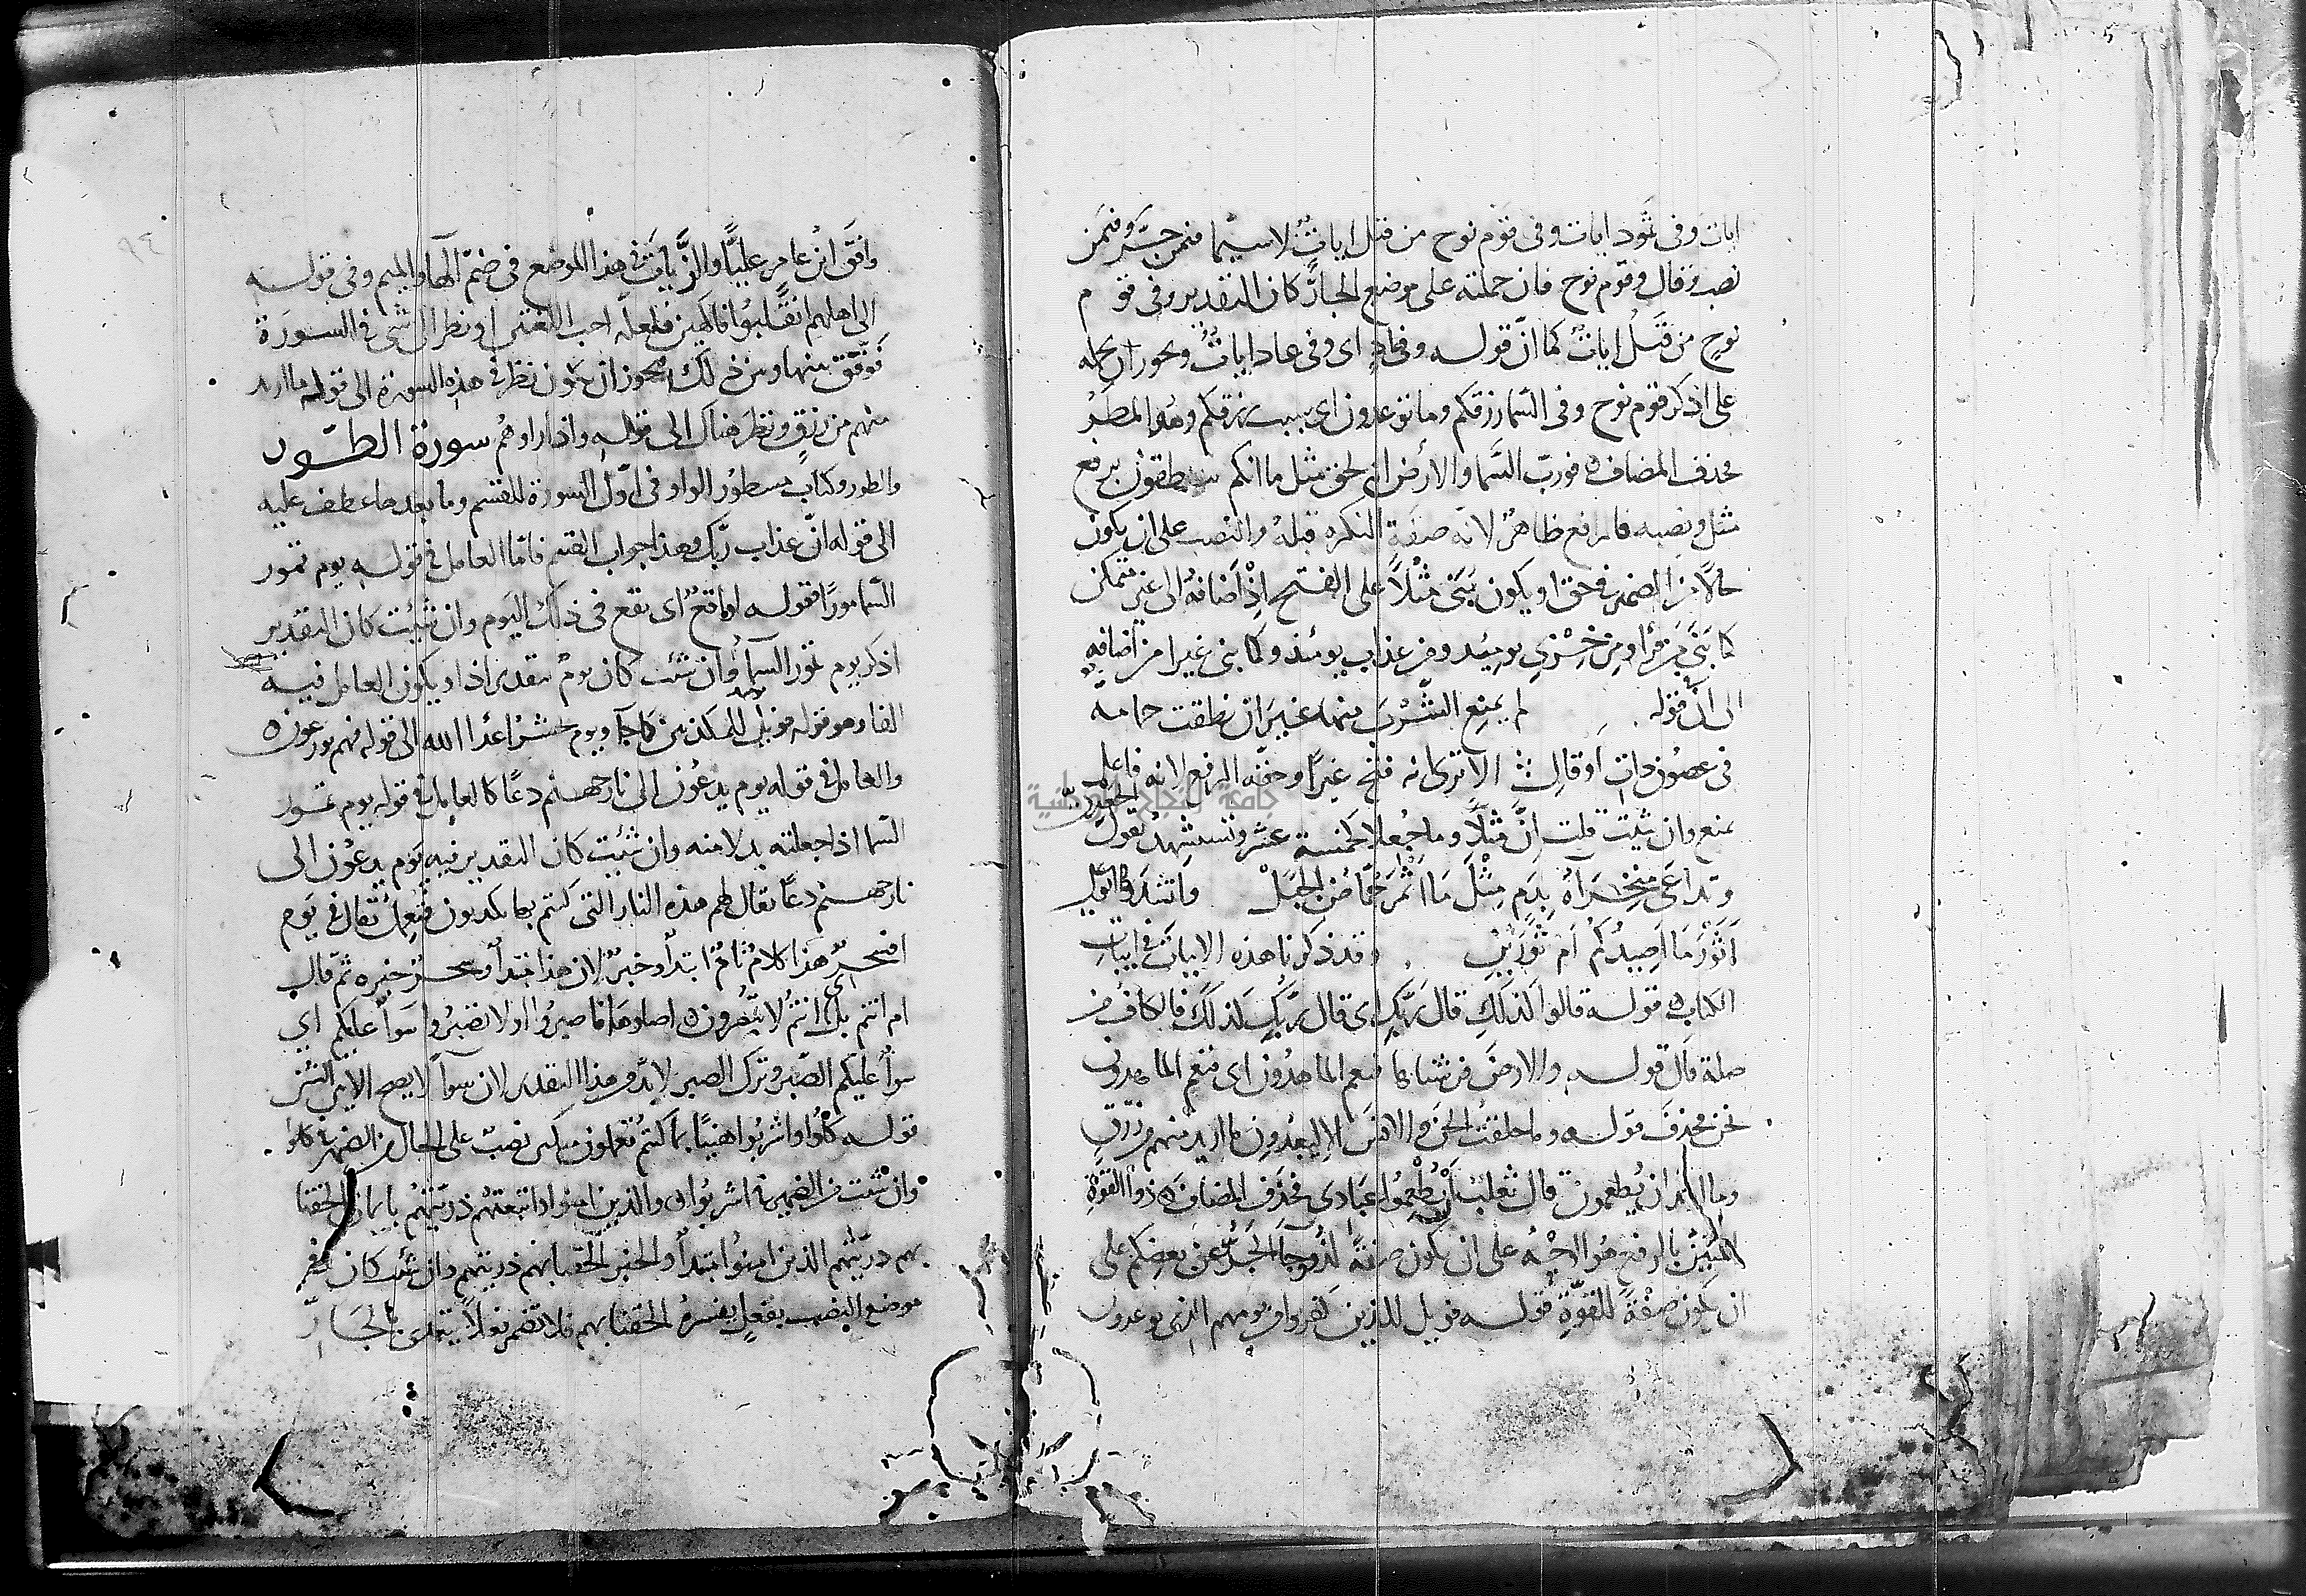 ايات وفى ثمود ايات وفى قوم نوح من قبل ايات لاسيما فيمن جر وفيمن
نصب فقال وقوم نوح فان حملته على موضع الجار كان التقدير وفى قوم
نوح من قبل ايات كما ان قوله وفى عاد اى وفى عاد ايات ويجوز ان يحمله
على اذكر قوم نوح وفى السما رزقكم وما توعدون اى سبب رزقكم وهو المطر
فحذف المضاف ه فورب السما والأرض انه لحق مثل ما انكم تنطقون برفع
مثل ونصبه فالرفع ظاهر لانه صفة النكره قبله والنصب على ان يكون
حالا من الضمير فى حق او يكون بنى مثلا على الفتح اذ اضافه الى غير متمكن
كما بنى من قرأ ومن خزى يومئذ ومن عذاب يومئذ وكما بنى غيرا من اضافه
الى ان فى قوله لم يمنع الشرب منها غير ان نطقت حمامة
فى غصون ذات اوقال الا ترى انه فتح غيرا وحقه الرفع لانه فاعل
يمنع وان شئت قلت ان مثلا وما جعلا كخمسة عشر وتستشهد بقول
وتداعى منخراه بدم مثل ما اثمر حماض الجبل
أثور ما اصيدكم ام ثورين وقد ذكرنا هذه الابيات فى ابيات
الكتاب ه قوله قالوا كذلك قال ربك اى قال ربك كذلك فالكاف من
صلة قال قوله والارض فرشناها فنعم الماهدون اى فنعم الماهدون
نحن فحذف قوله وما خلقت الجن والانس الا ليعبدون ما اريد منهم من رزق
وما اريد ان يطعمون قال ثعلب ان يطعموا عبادى فحذف المضاف ه ذو القوة
المتين بالرفع هو الوجه على ان يكون صفة لذو وجا الجر عن بعضكم على
ان يكون صفة للقوة قوله فويل للذين كفروا من يومهم الذى يوعدون
وافق ابن عامر عليا والزيات فى هذا الموضع فى ضم الها والميم وفى قوله
الى اهلهم انقلبوا فاكهين فلعله احب اللغتين او نظر الى شى فى السورة
فوفق بينها وبين ذلك فيجوز ان يكون نظر فى هذه السورة الى قوله ما اريد
منهم من رزق ونظر هناك الى قوله واذا راوهم سورة الطور
والطور وكتاب مسطور الواو فى اول السورة للقسم وما بعدها عطف عليه
الى قوله ان عذاب ربك وهذا جواب القسم فاما العامل فى قوله يوم تمور
السما مورا فقوله لواقع اى يقع فى ذلك اليوم وان شئت كان التقدير
اذكر يوم تمور السما وان شئت كان يوم بتقدير اذا ويكون العامل فيه
الفا وهو قوله فويل يومئذ للمكذبين كما جا ويوم يحشر اعدا الله الى قوله فهم يوزعون ه
والعامل فى قوله يوم يدعون الى نار جهنم دعا كالعامل فى قوله يوم تمور
السما اذا جعلته بدلا منه وان شئت كان التقدير فيه يوم يدعون الى
نار جهنم دعا يقال لهم هذه النار التى كنتم بها تكذبون فيعمل يقال فى يوم
افسحر هذا كلام تام ابتدأ وخبر لان هذا مبتدأ وسحر خبره ثم قال
ام انتم بل انتم لا تبصرون ه اصلوها فاصبروا او لا تصبروا سوا عليكم اى
سوا عليكم الصبر وترك الصبر لابد من هذا التقدير لان سوا لا يصح الا بين اثنين
قوله كلوا واشربوا هنيئا بما كنتم تعملون متكئين نصب على الحال من الضمير فى كلوا
وان شئت من الضمير فى اشربوا ه والذين امنوا واتبعتهم ذريتهم بايمان الحقنا
بهم ذريتهم الذين امنوا مبتدأ والخبر الحقنا بهم ذريتهم وان شئت كان فى
موضع النصب بفعل يفسره الحقنا بهم فلا تضمر فعلا يتعدى بالجار